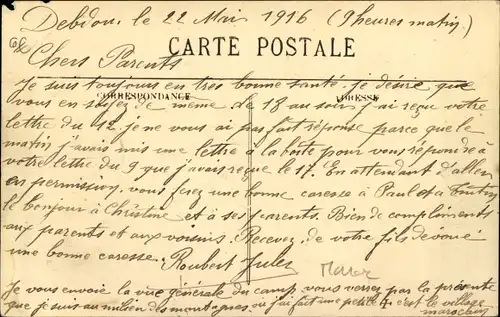 Debdou, le 22 Mai 1916 (9 heures matin)
CARTE POSTALE
Chers Parents
Je suis toujours en très bonne santé je désire que
CORRESPONDANCE
ADRESSE
vous en soyez de même de 18 au soir, j'ai reçu votre
lettre du 12, je ne vous ai pas fait réponse parce que le
matin j'avais mis une lettre à la boîte pour vous répondre à
votre lettre du 9 que j'avais reçue le 17. En attendant d'aller
en permission, vous ferez une bonne caresse à Paul et à
le bonjour à Christine et à ses parents. Bien de compliments
aux parents et aux voisins. Recevez de votre fils dévoué
une bonne caresse. Roubert Jules
Maroc
Je vous envoie la vue générale du camp vous verrez par la présente
que je suis au milien des montagnes, où j'ai fait une petite 4 c'est le village
marocain